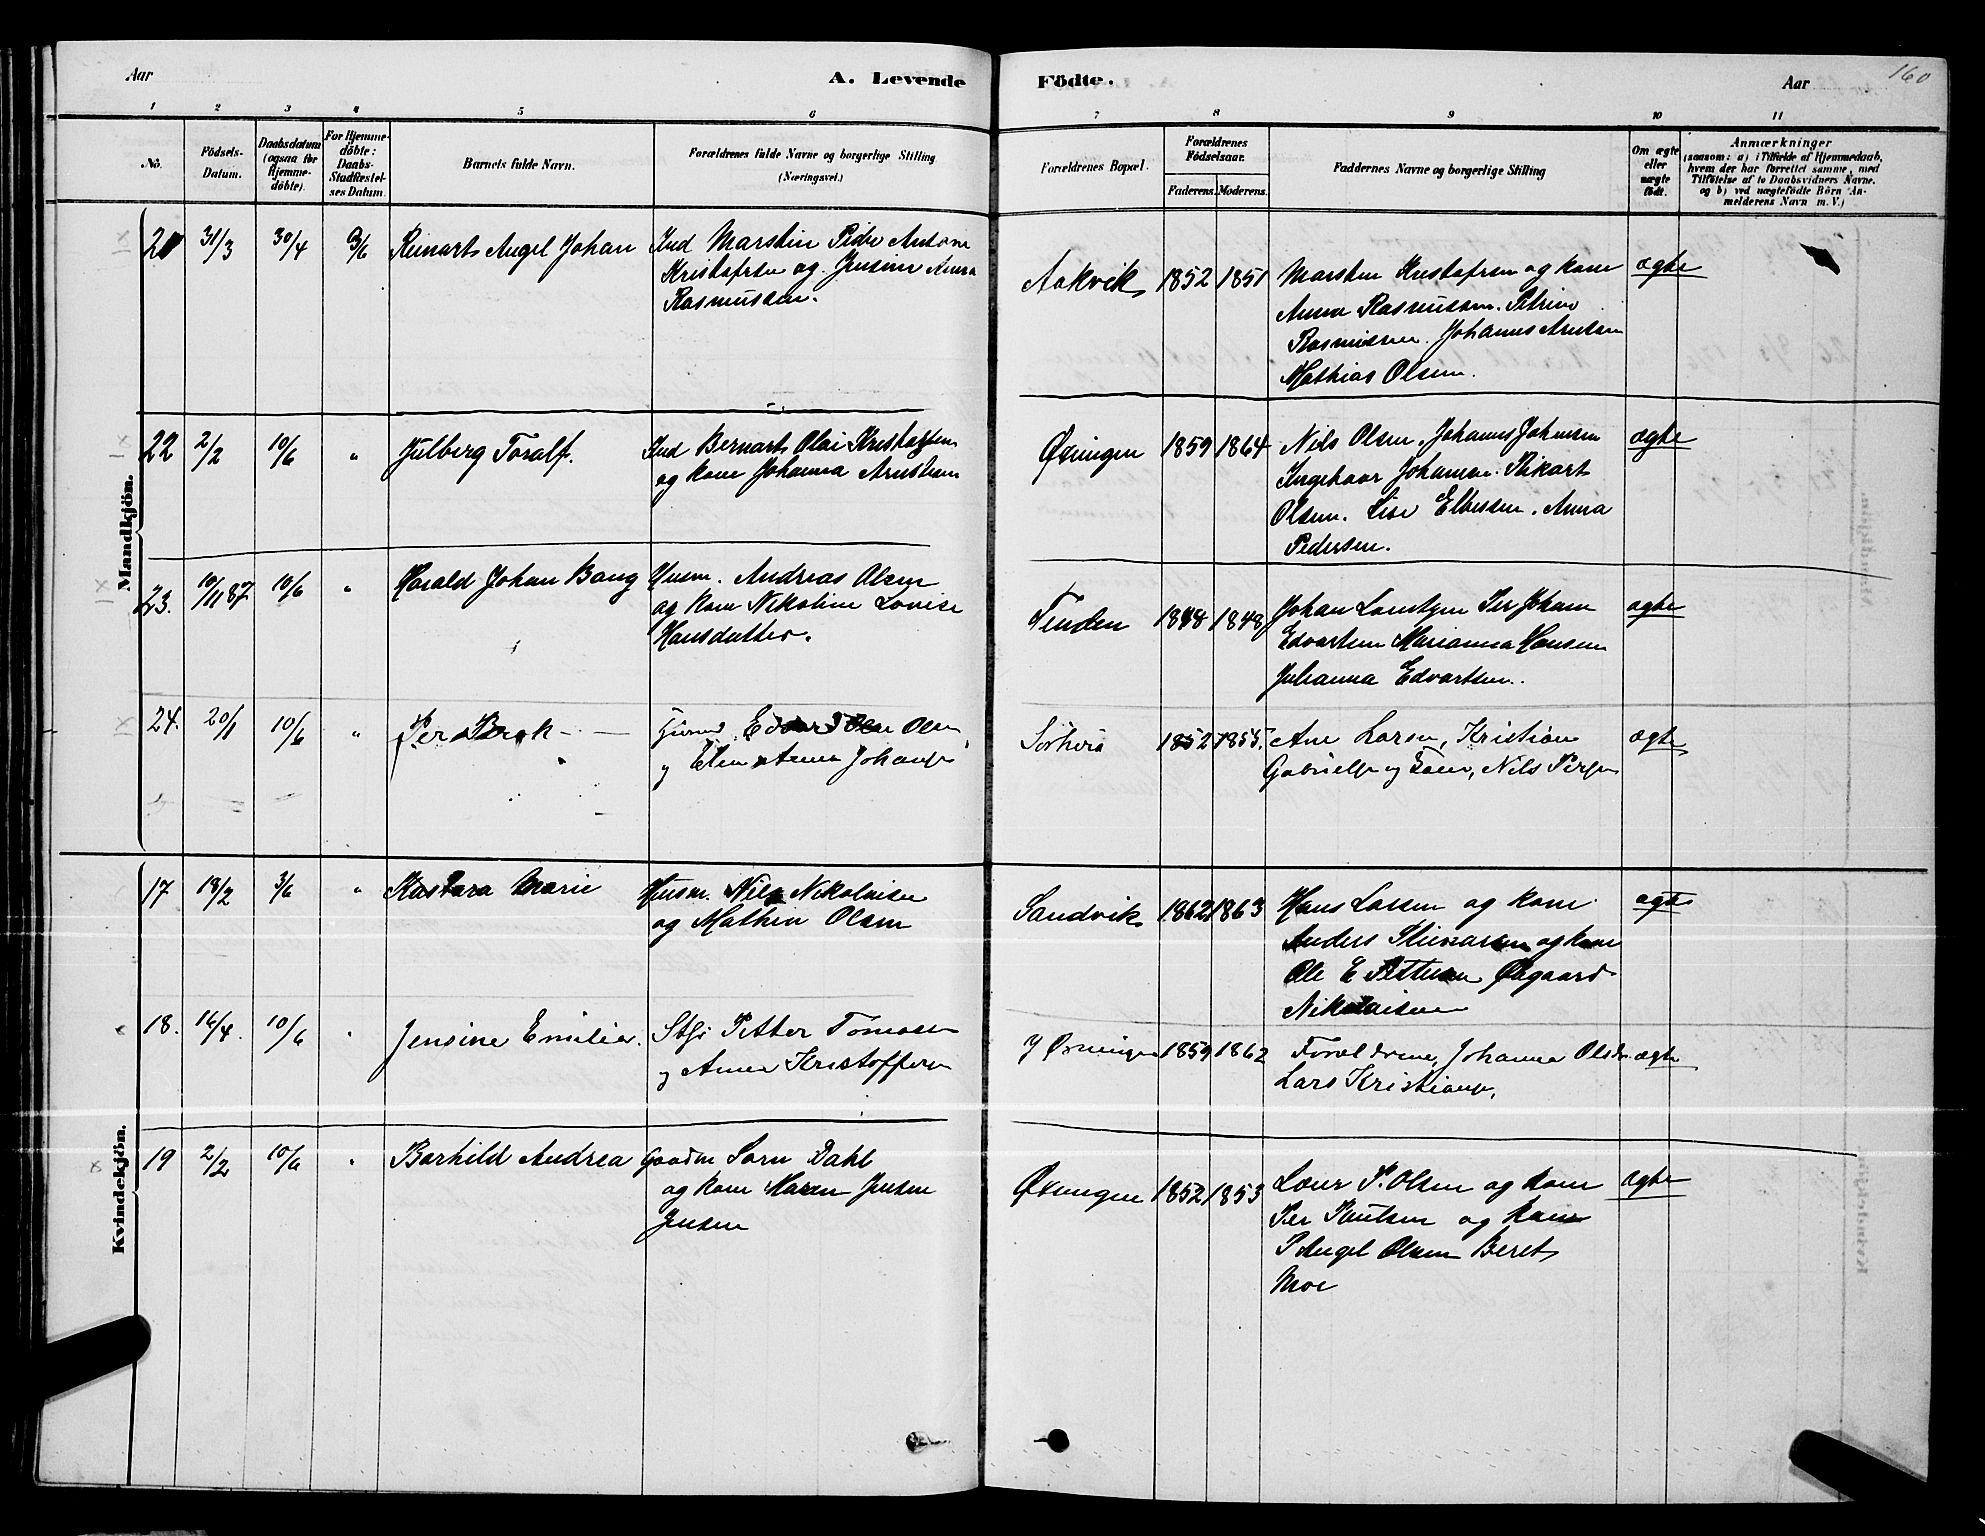 Aar
A. Levende
Födte.
Aar
160
1 2 3 4 5 6 7 8 9 10 11
No.
Födsels-
Datum.
Daabsdatum
(ogsaa for
Hjemme-
döbte).
For Hjemme-
döbte:
Daabs-
Stadfæstel-
ses Datum.
Barnets fulde Navn.
Forældrenes fulde Navne og borgerlige Stilling
(Næringsvei.)
Forældrenes Bopæl.
Forældrenes
Födselsaar.
Faderens. Moderens.
Faddernes Navne og borgerlige Stilling
Om ægte
eller
uægte
födt.
Anmærkninger
(saasom: a) i Tilfælde af Hjemmedaab,
hvem der har forrettet samme, med
Tilföielse af to Daabsvidners Navne,
og b) ved uægtefödte Börn An-
melderens Navn m. V.)
Mandkjön.
21 31/3 30/4 3/6 Reinart Angel Johan
Ind Marstin Peder Antone
Kristofsen og Jensine Anna
Rasmussen.
Aakvik 1852 1851
Marstin Kristofsen og kone
Anna Rasmussen. Petrine
Rasmussen. Johannes Arntsen
Mathias Olsen.
ægte
22 2/2 10/6 " Julberg Toralf.
Ind Bernart Olai Kristoffersen
og kone Johanna Arntsen
Øxningen 1859 1864
Nils Olsen, Johannes Johansen
Ingeboar Johansen. Rikart
Olsen. Lise Elbersen. Anna
Pedersen.
ægte
23. 10/11 87 10/6 " Harald Johan Bang
Husm. Andreas Olsen
og kone Nikoline Lovise
Hansdatter.
Tenden 1848 1848
Johan Lorntsen Per Johan
Edvartsen Marianna Hansen
Julianna Edvartsen.
ægte
24. 20/1 10/6 " Per Berak
Edvard Olsen
og Elen Anna Johansen
Sörhvis 1852 1855.
Ane Larsen, Kristian
Gabrielsen og Kone, Nils Persen
ægte
Kvindekjön.
17 18/2 3/6 " Kastara Marie
Husm. Nils Nikolaisen
og Mathea Olsen
Sandvik 1862 1863
Hans Larsen og kone
Anders Steinarsen og kone
Ole E Pettersen Ødegaard
Nikolaisen
ægte
18. 16/4. 10/6 " Jensine Emilie.
Petter Tomasen
og Anna Kristoffersen
Y Øxningen 1859 1862
Foreldrene, Johanna Olsen
Lars Kristiansen,
ægte
19 2/2 10/6 " Borhild Andrea
Gaardm Sorn Dahl
og kone Maren Jensen
Jensen
Øxningen 1852 1853
Lour P. Olsen og kone
Per Knutsen og kone
P Angel Olsen Beret
Moe
ægte